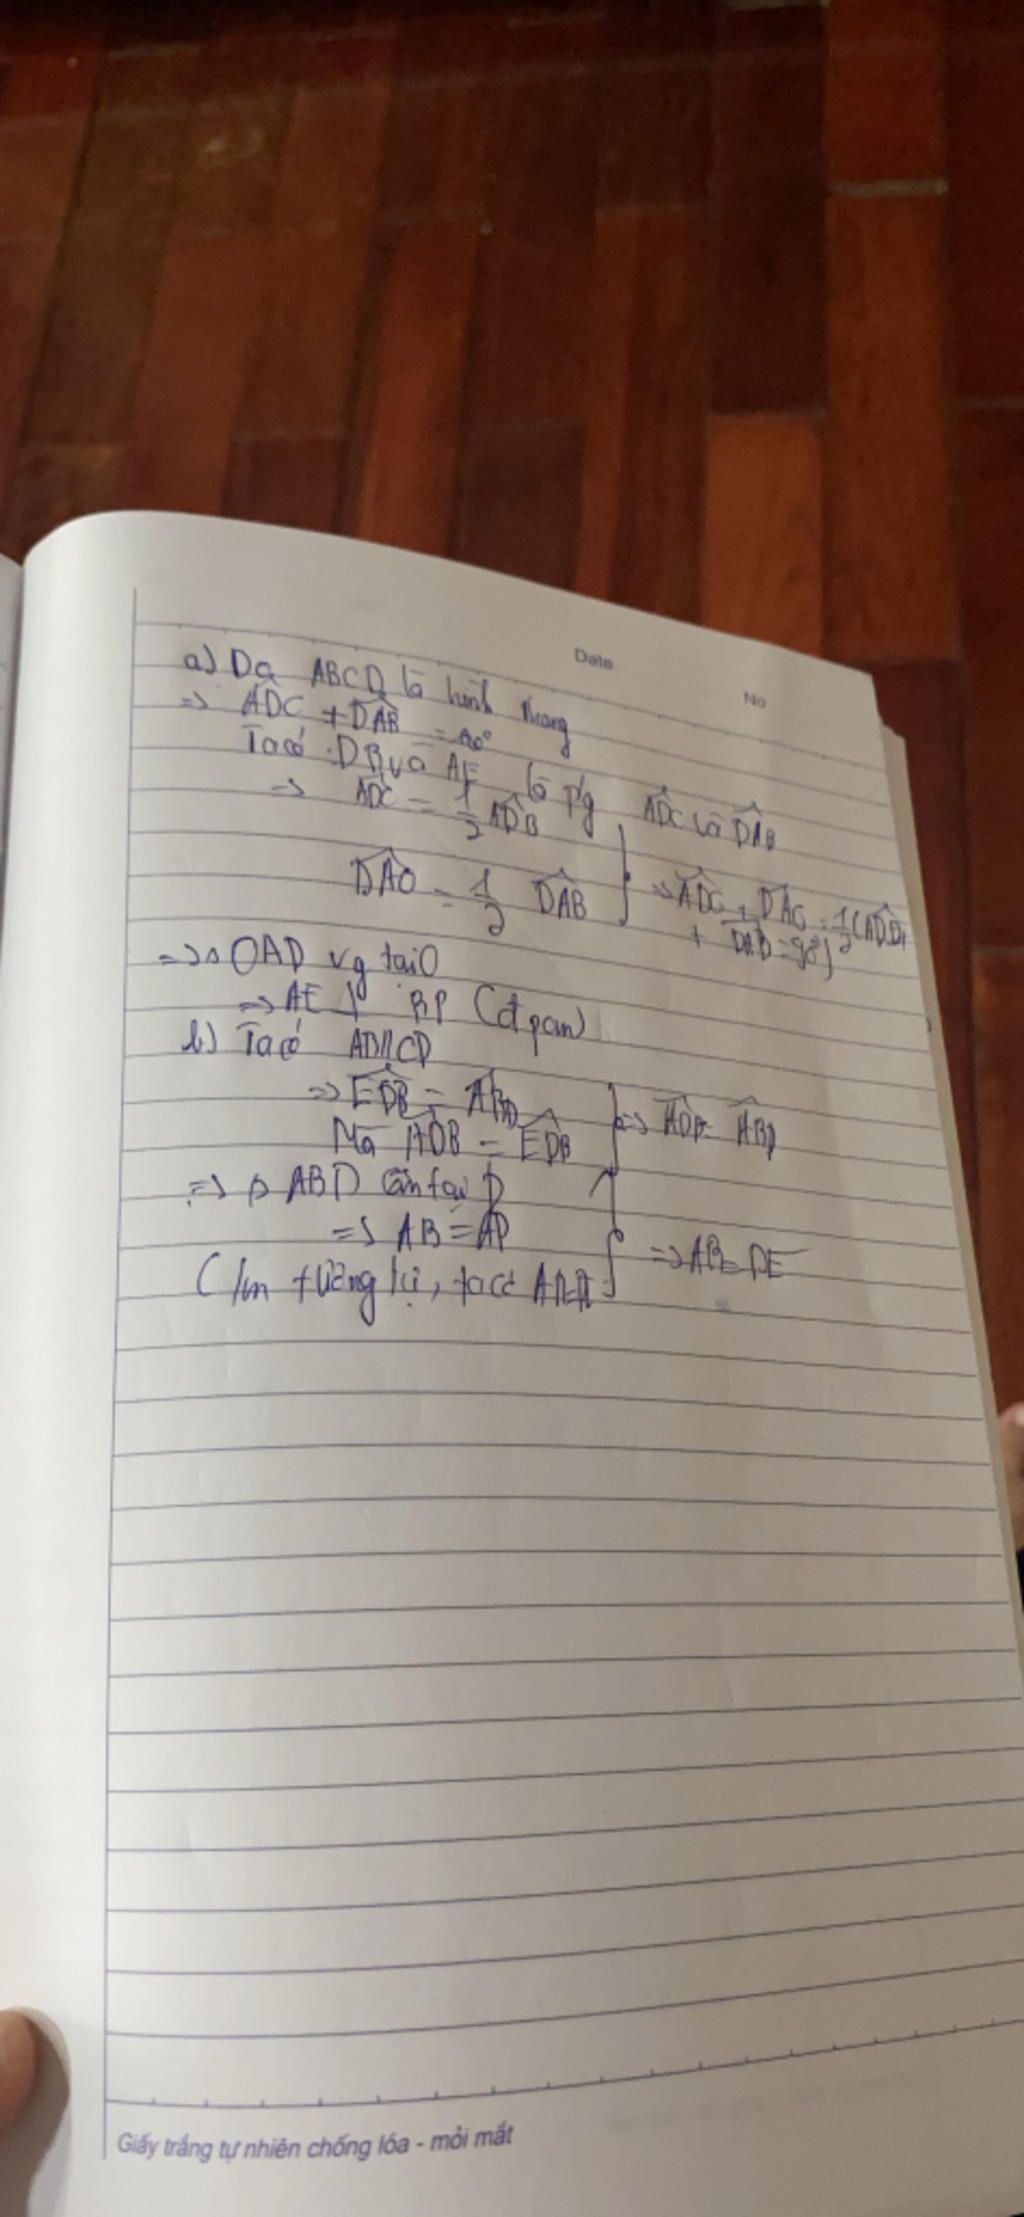 Date
No
a) Da ABCD là hình thang
=> ADC + DAB = 180°
Ta có: DB và AE là p/g ADC và DAB
=> ADC = 1/2 ADB
DAO = 1/2 DAB => ADO + DAO = 1/2 (ADB +
+ DAB = 90°)
=> Δ OAD vg tại O
=> AE ⊥ BD (đpcm)
b) Ta có AB // CD
=> EDB = ABD
Mà ADB = EDB => ADB = ABD
=> Δ ABD cân tại
=> AB = AD
C/m tương tự, ta có => AB = DE
Giấy trắng tự nhiên chống lóa - mỏi mắt